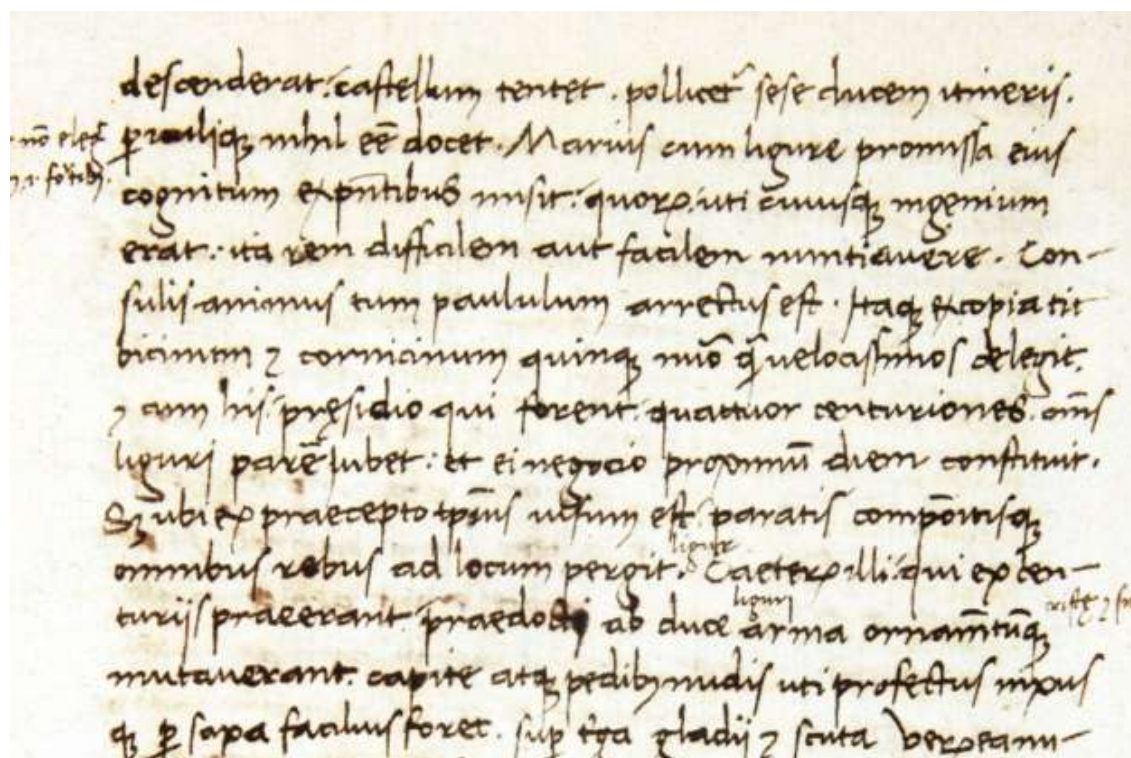 descenderat: castellum tentet. pollicet᷑ sese ducem itineris.
ꝑiculiqꝫ nihil eē docet. Marius cum ligure promissa eius
cognitum exp̄ntibus misit: quoꝝ uti cuiusqꝫ ingenium
erat: ita rem difficilem aut facilem nuntiauere. Con-
sulis animus tum paululum arrectus est. Itaqꝫ ex copia tit
bicinum ⁊ cornicinum quinqꝫ nūo q̄ uelocissimos delegit.
⁊ cum his: pręsidio qui forent: quattuor centuriones. om̄s
liguri parēˀ iubet: et ei negocio proximū diem constituit.
Sꝫ ubi ex praecepto tp̄us uisum est: paratis compōitisqꝫ
omnibus rebus ad locum pergit. Caeteꝝ illi: qui ex cen-
ligur
turijs praeerant praedocti ab duce arma ornam̄tūqꝫ
liguri
mutauerant. capite atqꝫ pedibꝫ nudis uti profectus nixus
qꝫ ꝑ saxa facilius foret. suꝑ t̄ga gladij ⁊ scuta ueꝝ eam-